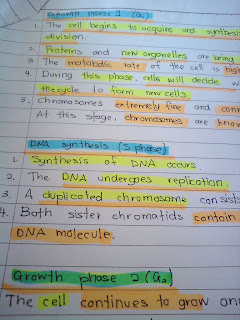 Growth phase 1 (G₁)
1. The cell begins to acquire and synthesis
division.
2. Proteins and new organelles are being
3. The metabolic rate of the cell is high
4. During this phase, cells will decide w
the cycle to form new cells.
5. Chromosomes extremely fine and con
At this stage, chromosomes are know
DNA synthesis (S phase)
1. Synthesis of DNA occurs.
2. The DNA undergoes replication.
3. A duplicated chromosome consists
4. Both sister chromatids contain
DNA molecule.
Growth phase 2 (G₂)
The cell continues to grow and